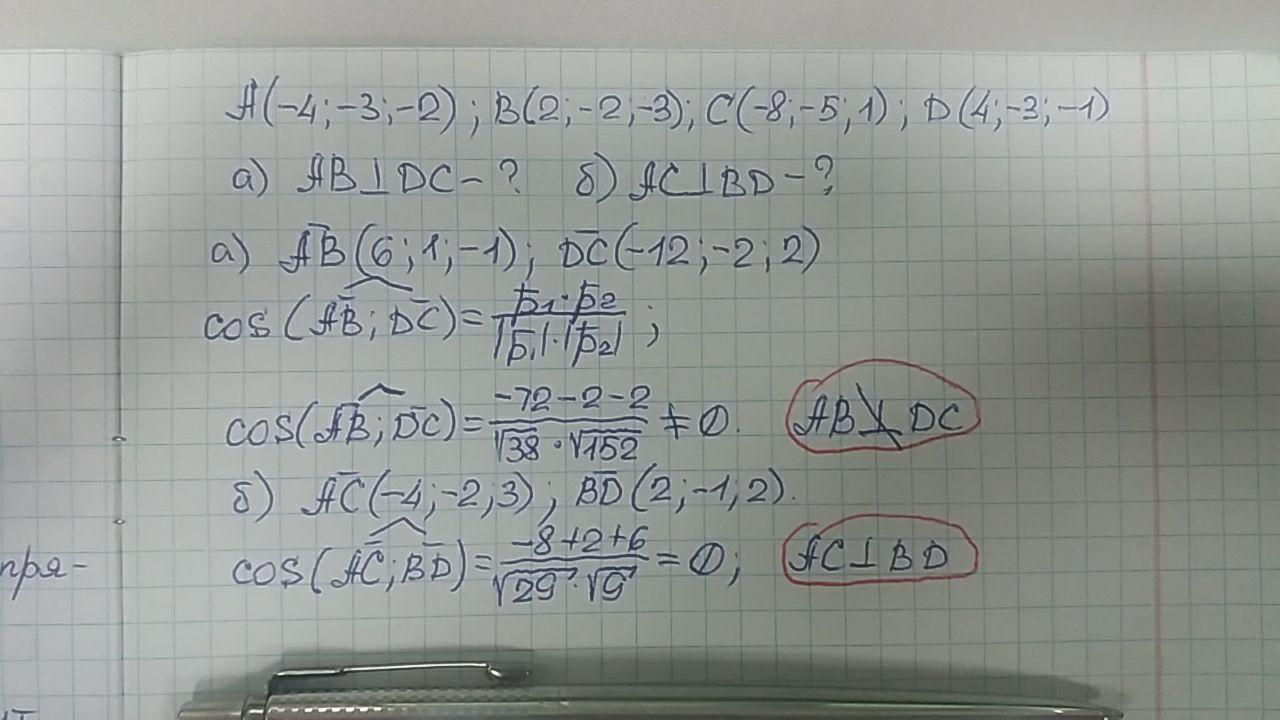 A(-4;-3;-2); B(2;-2;-3); C(-8;-5;1); D(4;-3;-1)
а) AB⊥DC-? б) AC⊥BD-?
а) A̅B̅(6;1;-1); D̅C̅(-12;-2;2)
cos(A̅B̅;D̅C̅)= p̅₁·p̅₂ / |p̅₁|·|p̅₂| ;
cos(A̅B̅;D̅C̅)= -72-2-2 / √38·√152 ≠ 0. AB⊥̸DC
б) A̅C̅(-4;-2;3); B̅D̅(2;-1;2).
cos(A̅C̅;B̅D̅)= -8+2+6 / √29·√9 = 0; AC⊥BD
пря-